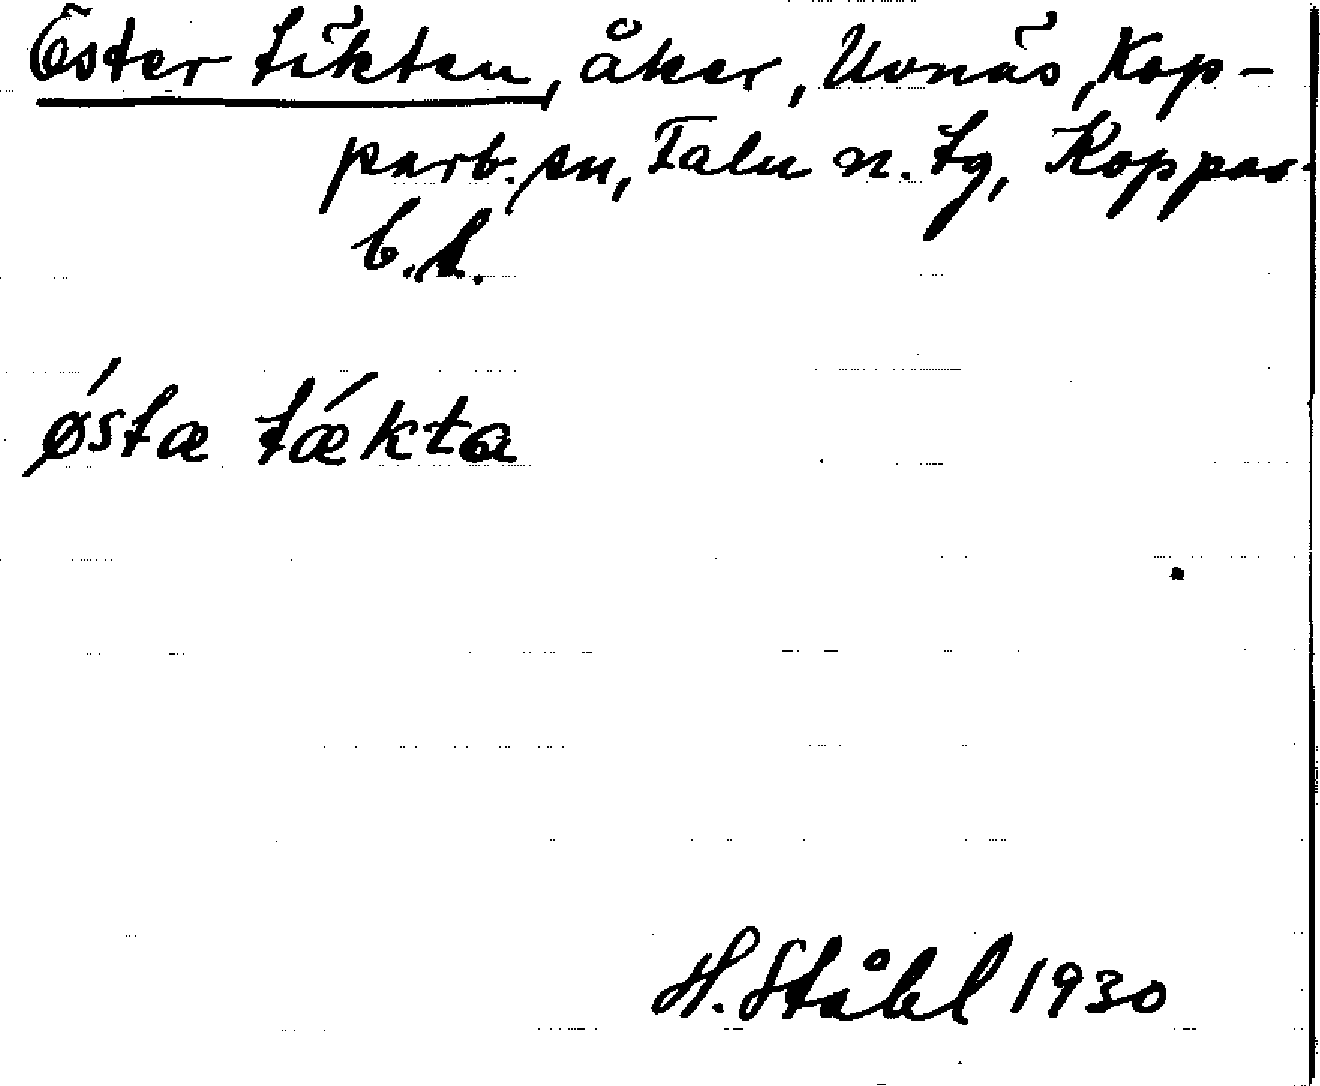 Öster täkten, åker, Uvnäs, Kop-
parb. sn, Falu n. tg, Koppar-
b. l.
østæ tǽkta
H. Ståhl 1930